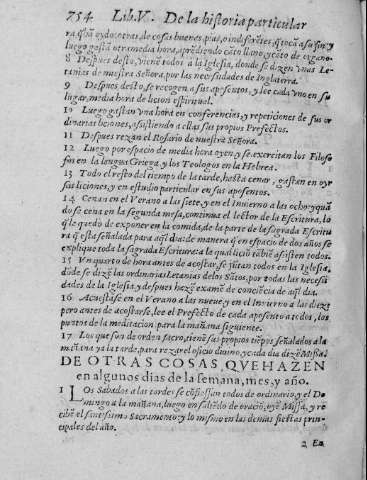 754 Lib.V. De la historia particular
ra, q̃ hã oydo: otras, de cosas buenas, pias, o indiferẽtes, q̃ tocã a su fin: y
luego gastã otra media hora, aprẽdiendo cãto llano, y cãto de organo.
8 Despues desto, vienẽ todos a la Iglesia, donde se dizen vnas Le-
tanias de nuestra Señora, por las necessidades de Inglaterra.
9 Despues desto se recogen a sus aposentos, y lee cada vno en su
lugar, media hora de licion espiritual.
10 Luego gastan vna hora en conferencias, y repeticiones de sus or
dinarias liciones, assistiendo a ellas sus propios Prefectos.
11 Despues rezan el Rosario de nuestra Señora.
12 Luego por espacio de media hora oyen y se exercitan los Filoso
fos en la lengua Griega, y los Teologos en la Hebrea.
13 Todo el resto del tiempo de la tarde, hasta cenar, gastan en oyr
sus liciones, y en estudio particular en sus aposentos.
14 Cenan en el Verano a las siete, y en el Inuierno a las ocho: y quã
do se cena en la segunda mesa, continua el lector de la Escritura, lo
q̃ le quedò de exponer en la comida, de la parte de la sagrada Escritu
ra q̃ està señalada para aq̃l dia: de manera q̃ en espacio de dos años se
explique toda la sagrada Escritura: a la qual liciõ tãbiẽ assisten todos.
15 Vn quarto de hora antes de acostar, se jũtan todos en la Iglesia,
dõde se dizẽ las ordinarias Letanias de los Sãtos, por todas las necessi
dades de la Iglesia, y despues hazẽ examẽ de conciẽcia de aq̃l dia.
16 Acuestãse en el Verano a las nueue, y en el Inuierno a las diez:
pero antes de acostarse, lee el Prefecto de cada aposento a todos, los
puntos de la meditacion para la mañana siguiente.
17 Los que son de orden sacro, tienẽ sus propios tiẽpos señalados a la
mañana y a la tarde, para rezar el oficio diuino, y cada dia dizẽ Missa.
DE OTRAS COSAS, QVE HAZEN
en algunos dias de la semana, mes, y año.
1 LOs Sabados a las tardes se cõfiessan todos de ordinario, y el Do
mingo a la mañana, luego en saliẽdo de oraciõ, oyẽ Missa, y re
cibẽ el santissimo Sacramento: y lo mismo en las demas fiestas prin-
cipales del año.
2 En